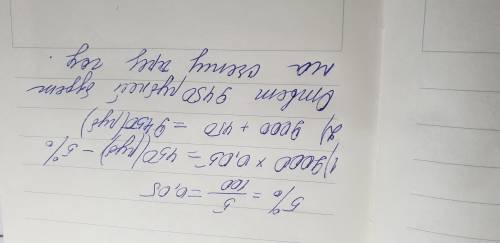 5% = 5/100 = 0,05
1) 9000 × 0,05 = 450 (руб) - 5%
2) 9000 + 450 = 9450 (руб)
Ответ 9450 рублей будет
на счету через год.